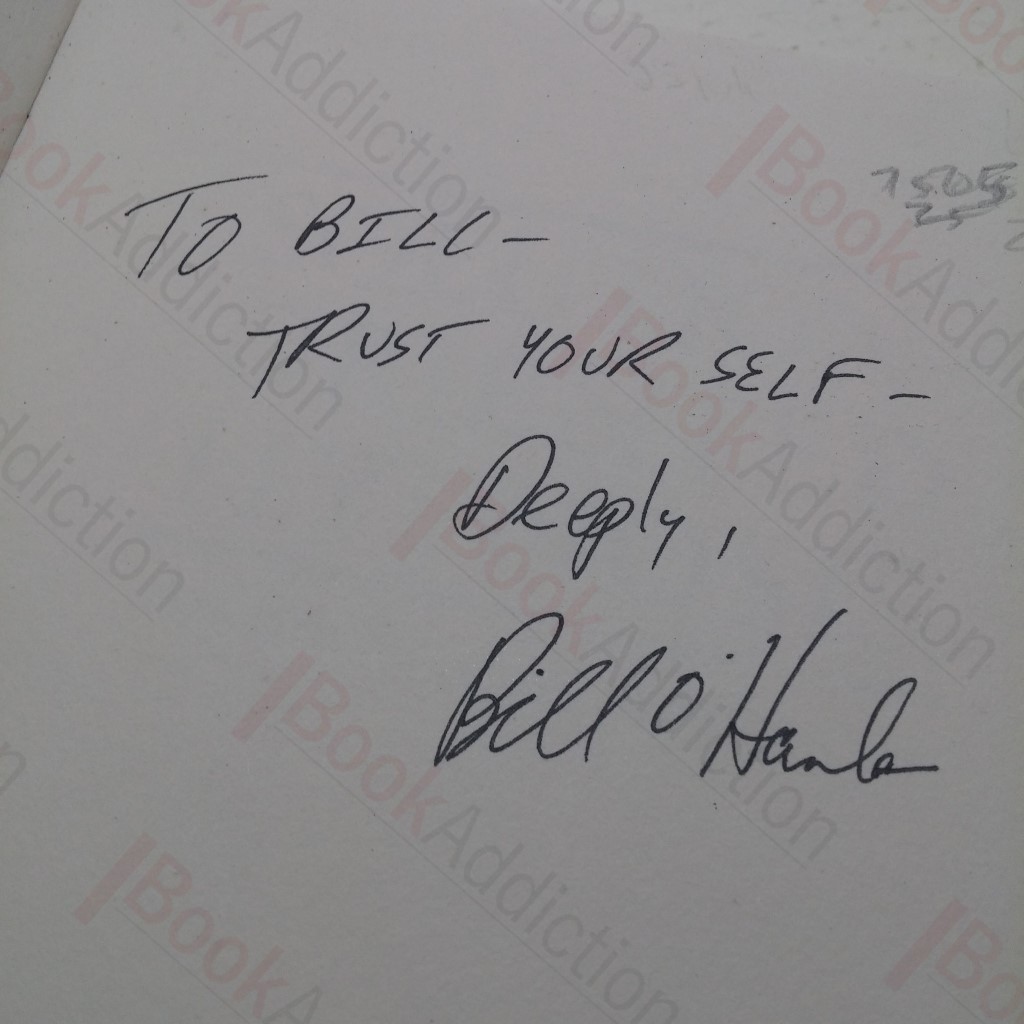 TO BILL –
TRUST YOUR SELF –
Deeply,
Bill O'Hanlon
BookAddiction